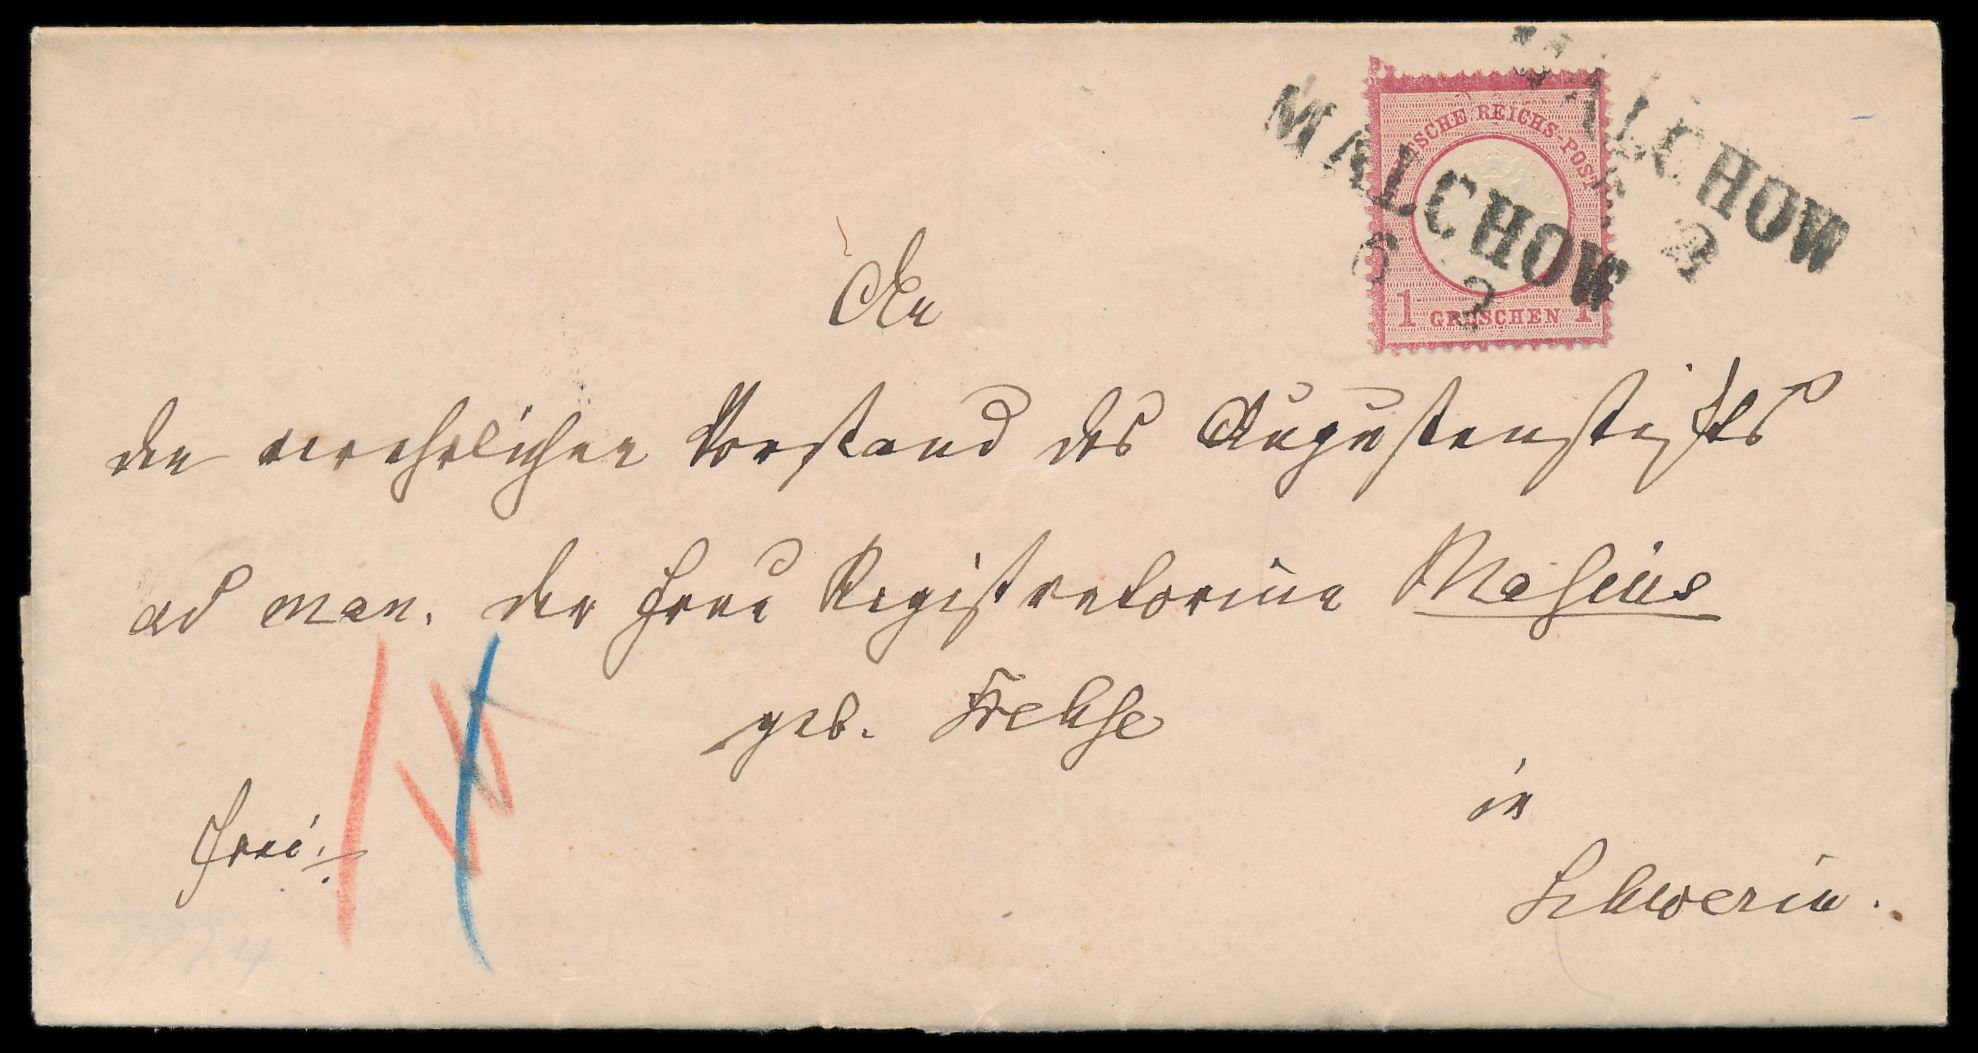 MALCHOW
6 3
MALCHOW
3
DEUTSCHE REICHS-POST
1 GROSCHEN 1
An
den verehrlichen Vorstand des Augustenstifts
ad man. der Frau Registratorinn Masius
geb. Krebse
in
Schwerin.
frei.